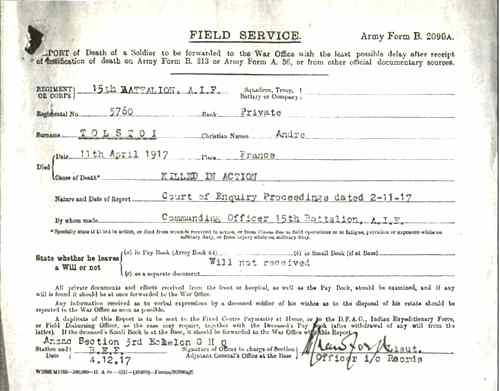 FIELD SERVICE.
Army Form B. 2090A.
PORT of Death of a Soldier to be forwarded to the War Office with the least possible delay after receipt
of notification of death on Army Form B. 213 or Army Form A. 36, or from other official documentary sources.
REGIMENT OR CORPS} 15th BATTALION, A.I.F. Squadron, Troop, Battery or Company
Regimental No. 5760 Rank Private
Surname TOLSTOI Christian Names Andre
Died {Date 11th April 1917 Place France
Cause of Death* KILLED IN ACTION
Nature and Date of Report Court of Enquiry Proceedings dated 2-11-17
By whom made Commanding Officer 15th Battalion, A.I.F.
*Specially state if killed in action, or died from wounds received in action, or from illness due to field operations or to fatigue, privation or exposure while on
military duty, or from injury while on military duty.
State whether he leaves a Will or not
(a) in Pay Book (Army Book 64) (b) in Small Book (if at Base)
Will not received
(c) as a separate document
All private documents and effects received from the front or hospital, as well as the Pay Book, should be examined, and if any
will is found it should be at once forwarded to the War Office.
Any information received as to verbal expressions by a deceased soldier of his wishes as to the disposal of his estate should be
reported to the War Office as soon as possible.
A duplicate of this Report is to be sent to the Fixed Centre Paymaster at Home, or to the D.F.A.G., Indian Expeditionary Force,
or Field Disbursing Officer, as the case may require, together with the Deceased's Pay Book (after withdrawal of any will from the
latter). If the deceased's Small Book is at the Base, it should be forwarded to the War Office with this Report.
Anzac Section 3rd Echelon G H Q
Station and Date} B.E.F. Signature of Officer in charge of Section Adjutant General's Office at the Base} Lieut.
4.12.17 Officer i/c Records